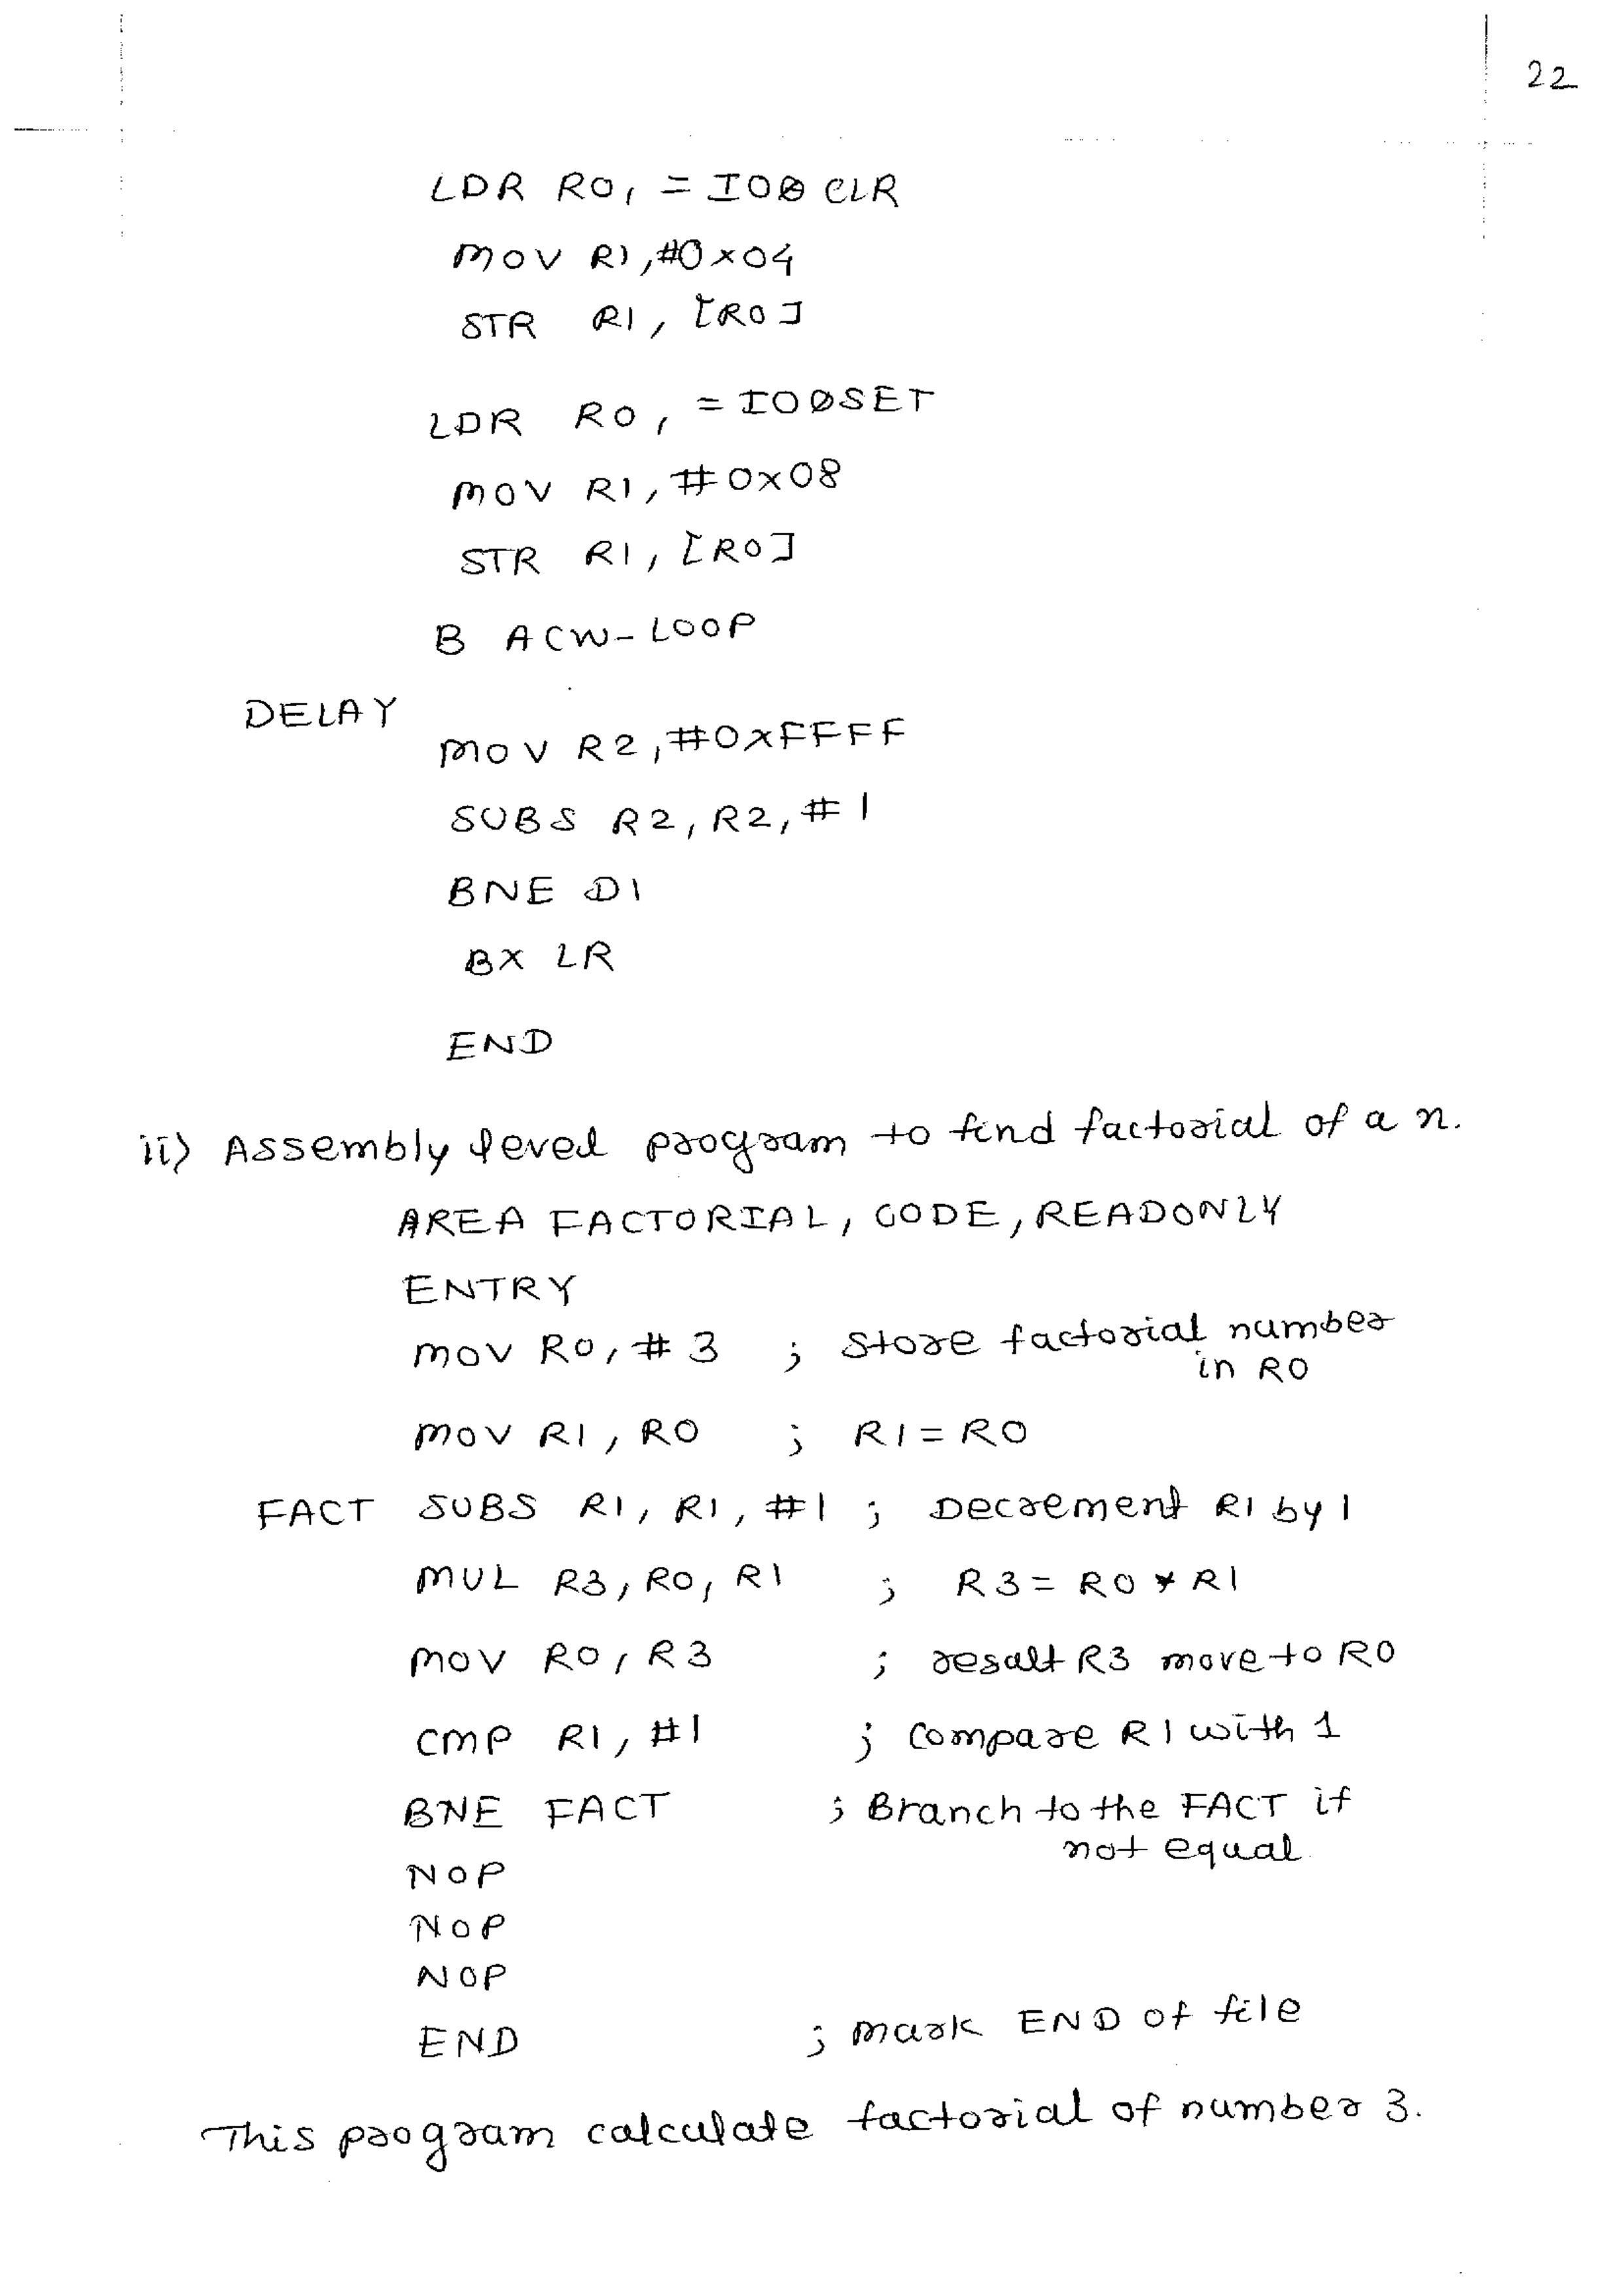 22
LDR R0, = IO0CLR
MOV R1, #0x04
STR R1, [R0]
LDR R0, = IO0SET
MOV R1, #0x08
STR R1, [R0]
B ACW-LOOP
DELAY
MOV R2, #0xFFFF
SUBS R2, R2, #1
BNE D1
BX LR
END
ii) Assembly level program to find factorial of a n.
AREA FACTORIAL, CODE, READONLY
ENTRY
MOV R0, #3 ; Store factorial number
in R0
MOV R1, R0 ; R1 = R0
FACT SUBS R1, R1, #1 ; Decrement R1 by 1
MUL R3, R0, R1 ; R3 = R0 * R1
MOV R0, R3 ; result R3 move to R0
CMP R1, #1 ; compare R1 with 1
BNE FACT ; Branch to the FACT if
not equal
NOP
NOP
NOP
END ; mark END of file
This program calculate factorial of number 3.